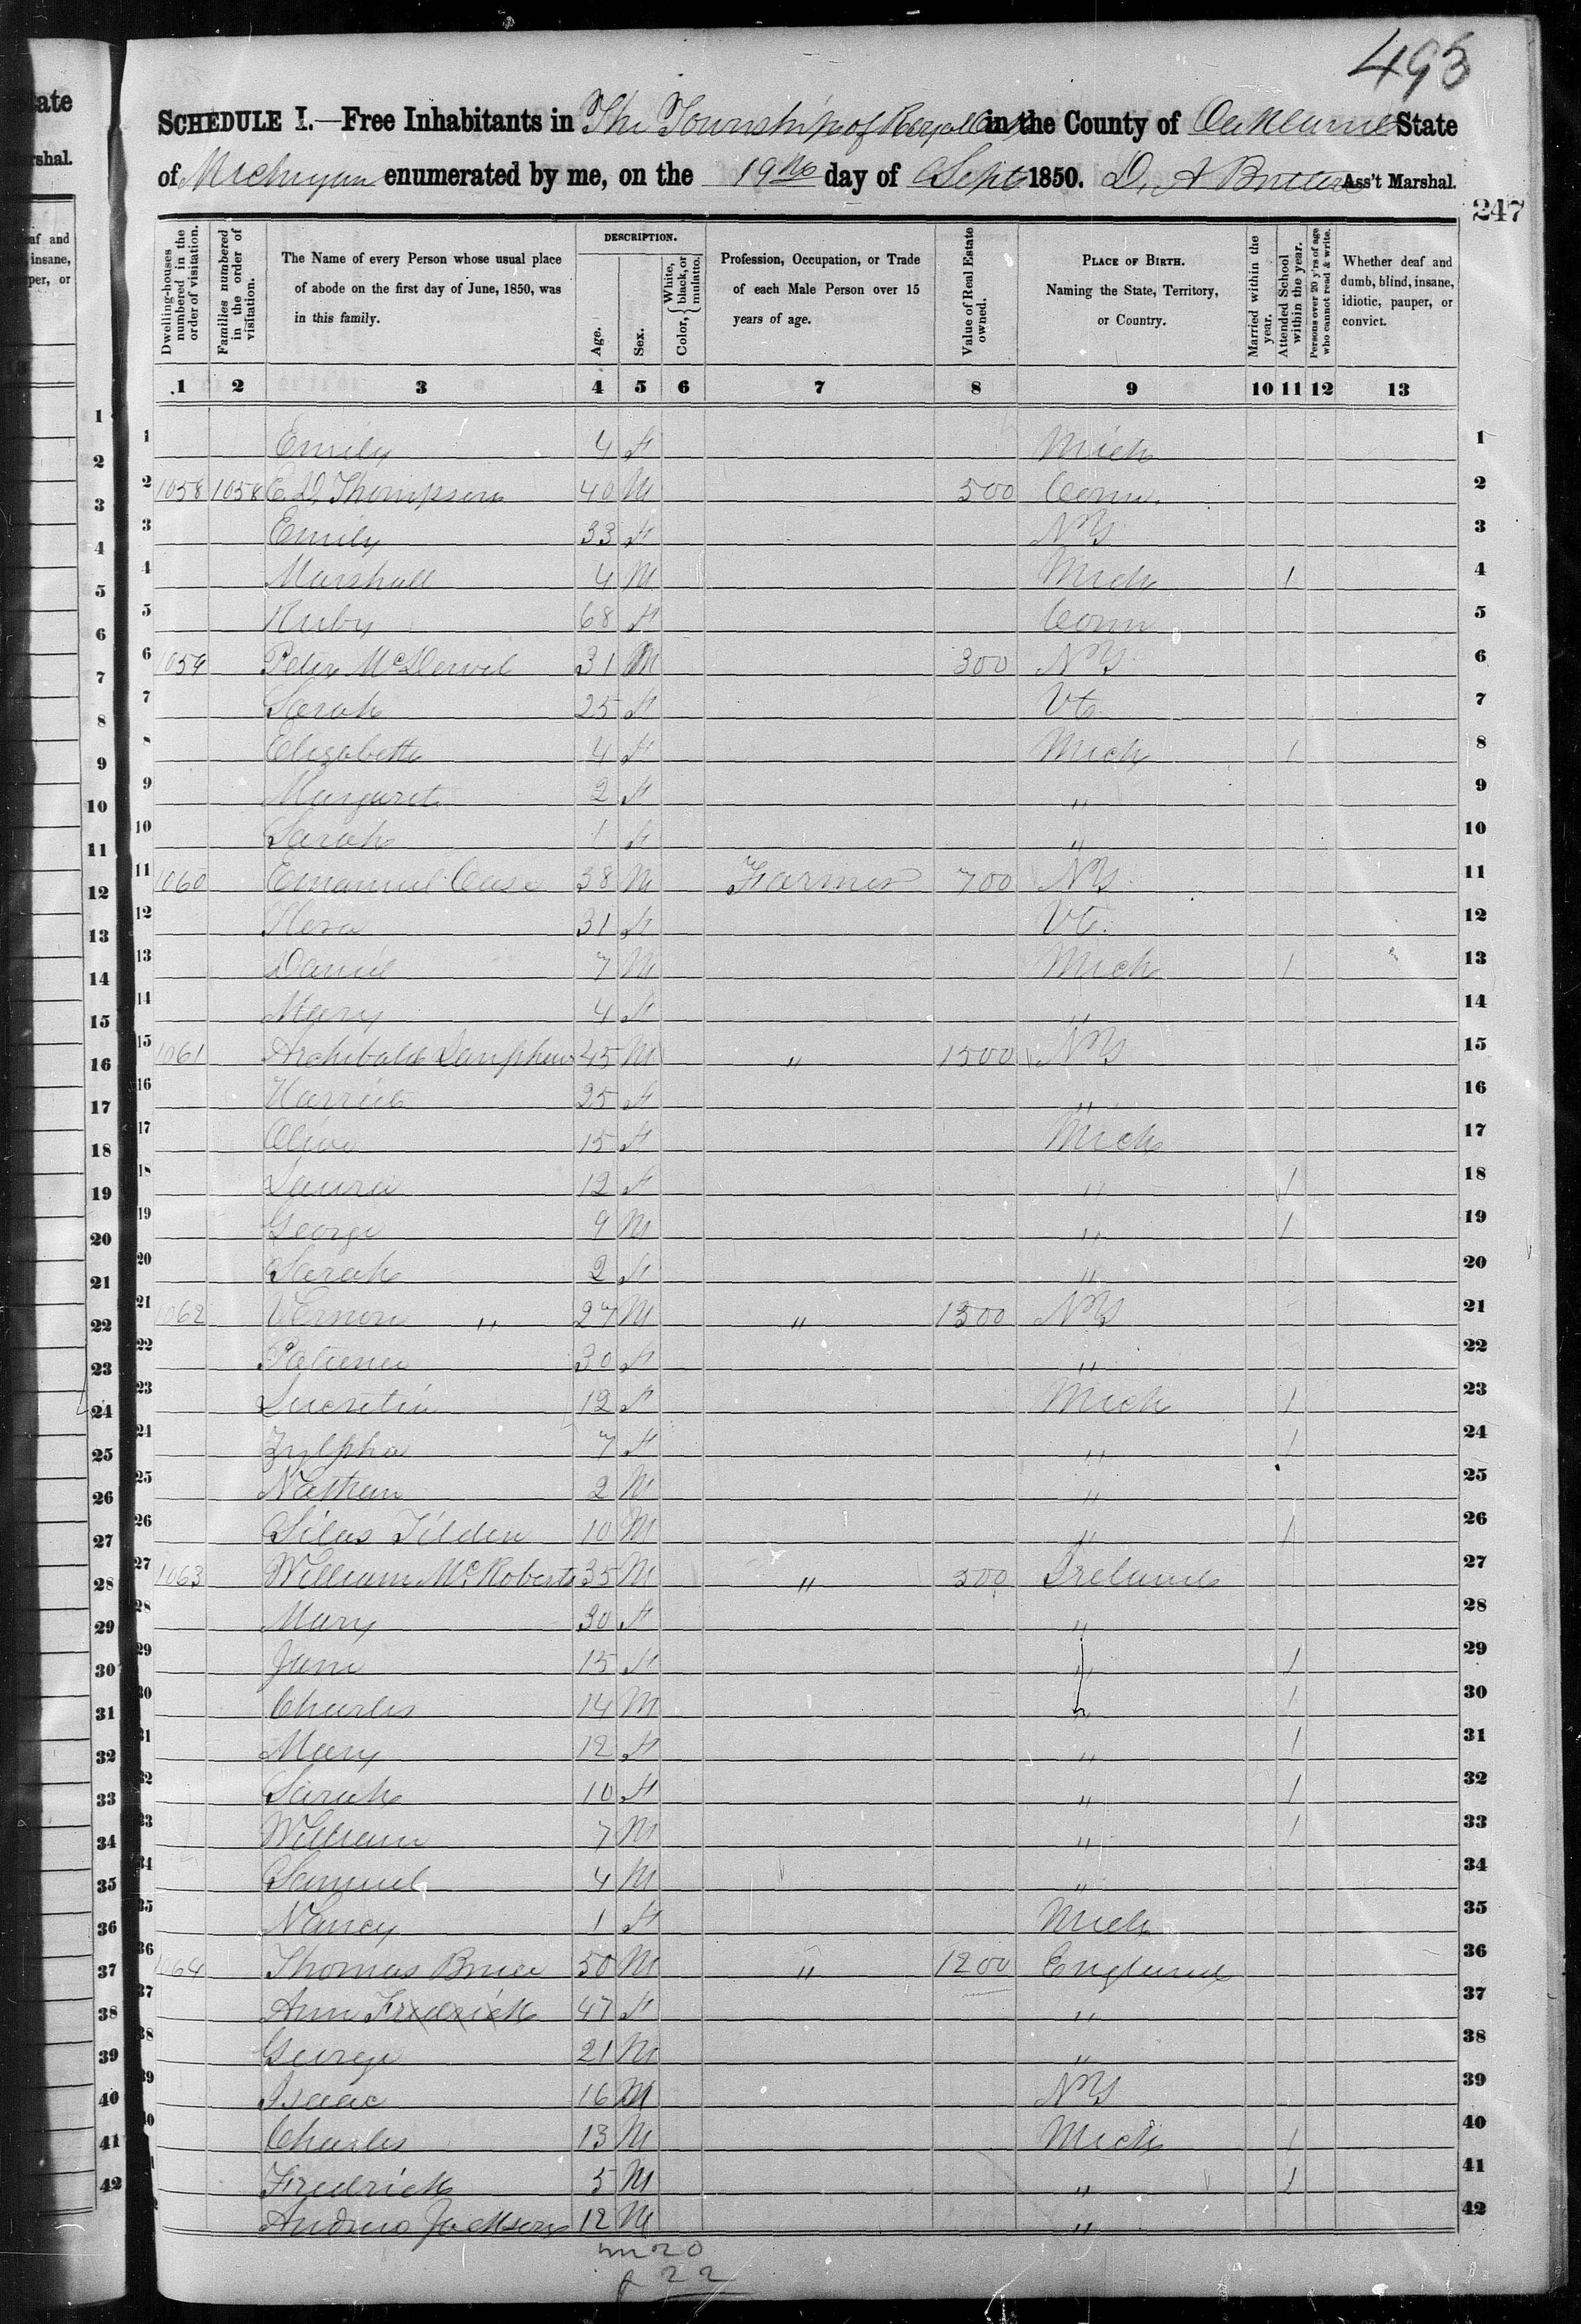 495
SCHEDULE I.—Free Inhabitants in The Township of Royal Oak in the County of Oakland State
of Michigan enumerated by me, on the 19th day of Sept 1850. D. A Ass't Marshal.
247
Dwelling-houses numbered in the order of visitation. Families numbered in the order of visitation. The Name of every Person whose usual place of abode on the first day of June, 1850, was in this family. DESCRIPTION. Age. Sex. Color, White, black, or mulatto. Profession, Occupation, or Trade of each Male Person over 15 years of age. Value of Real Estate owned. PLACE OF BIRTH. Naming the State, Territory, or Country. Married within the year. Attended School within the year. Persons over 20 y'rs of age who cannot read & write. Whether deaf and dumb, blind, insane, idiotic, pauper, or convict.
1 2 3 4 5 6 7 8 9 10 11 12 13
1 Emily 4 f Mich 1
2 1058 1058 E D Thompson 40 M 500 Conn. 2
3 Emily 33 f NY 3
4 Marshall 4 M Mich 1 4
5 Ruby 68 f Conn 5
6 1059 Peter 31 M 300 NY 6
7 Sarah 25 f Vt 7
8 Elizabeth 4 f Mich 1 8
9 Margaret 2 f " 9
10 Sarah 1 f " 10
11 1060 Emanuel Case 38 M Farmer 700 NY 11
12 31 f Vt. 12
13 Daniel 7 M Mich 1 13
14 Mary 4 f " 14
15 1061 Archibald Lanphear 45 M " 1500 NY 15
16 Harriet 25 f " 16
17 Olive 15 f Mich 17
18 Laura 12 f " 1 18
19 George 9 M " 1 19
20 Sarah 2 f " 20
21 1062 Vernon " 27 M " 1300 NY 21
22 Patience 30 f " 22
23 Lucretia 12 f Mich 1 23
24 Zylpha 7 f " 1 24
25 Nathan 2 M " 25
26 Silas Tilden 10 M " 1 26
27 1063 William McRoberts 35 M " 500 Ireland 27
28 Mary 30 f " 28
29 Jane 15 f " 1 29
30 Charles 14 M " 1 30
31 Mary 12 f " 1 31
32 Sarah 10 f " 1 32
33 William 7 M " 1 33
34 Samuel 4 M " 34
35 Nancy 1 f Mich 35
36 1064 Thomas 50 M " 1200 England 36
37 Ann Fredrick 47 f " 37
38 George 21 M " 38
39 Isaac 16 M NY 39
40 Charles 13 M Mich 1 40
41 Fredrick 5 M " 1 41
Andrew Jackson 12 M " 42
m 20
f 22